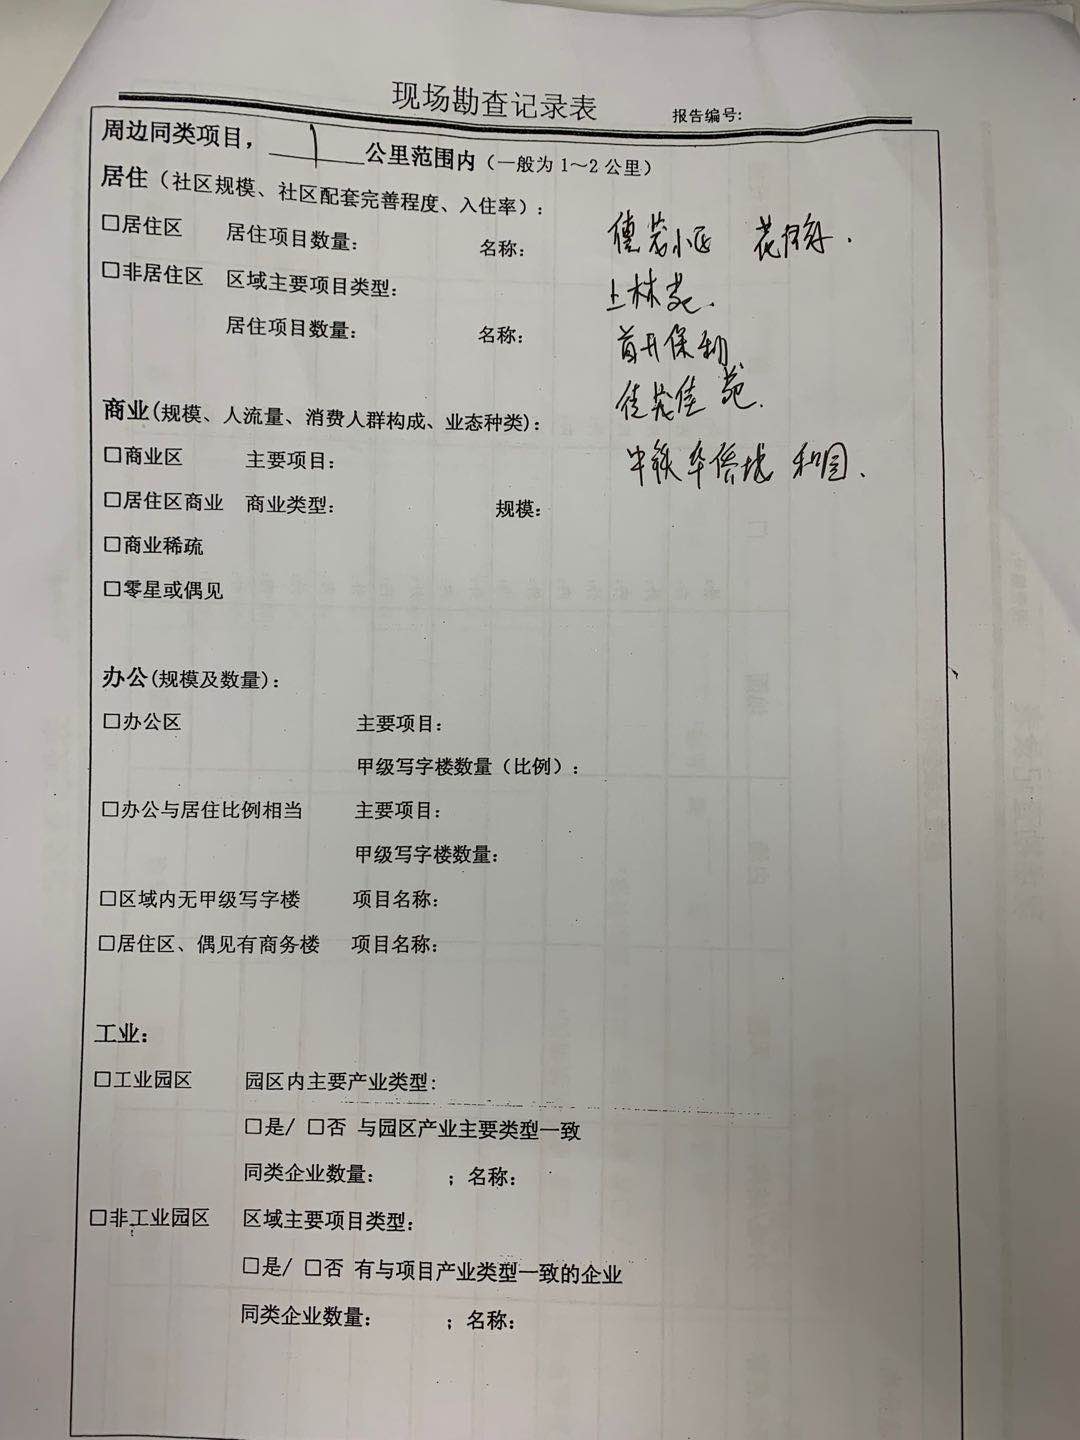 现场勘查记录表
报告编号:
周边同类项目， 1 公里范围内（一般为 1～2 公里）
居住（社区规模、社区配套完善程度、入住率）:
□居住区 居住项目数量: 名称: 德茂小区
□非居住区 区域主要项目类型: 上林苑.
居住项目数量: 名称: 首开保利
佳苑.
商业(规模、人流量、消费人群构成、业态种类):
□商业区 主要项目: 中铁华侨城 和园.
□居住区商业 商业类型: 规模:
□商业稀疏
□零星或偶见
办公(规模及数量):
□办公区 主要项目:
甲级写字楼数量（比例）:
□办公与居住比例相当 主要项目:
甲级写字楼数量:
□区域内无甲级写字楼 项目名称:
□居住区、偶见有商务楼 项目名称:
工业:
□工业园区 园区内主要产业类型:
□是/ □否 与园区产业主要类型一致
同类企业数量: ; 名称:
□非工业园区 区域主要项目类型:
□是/ □否 有与项目产业类型一致的企业
同类企业数量: ; 名称: